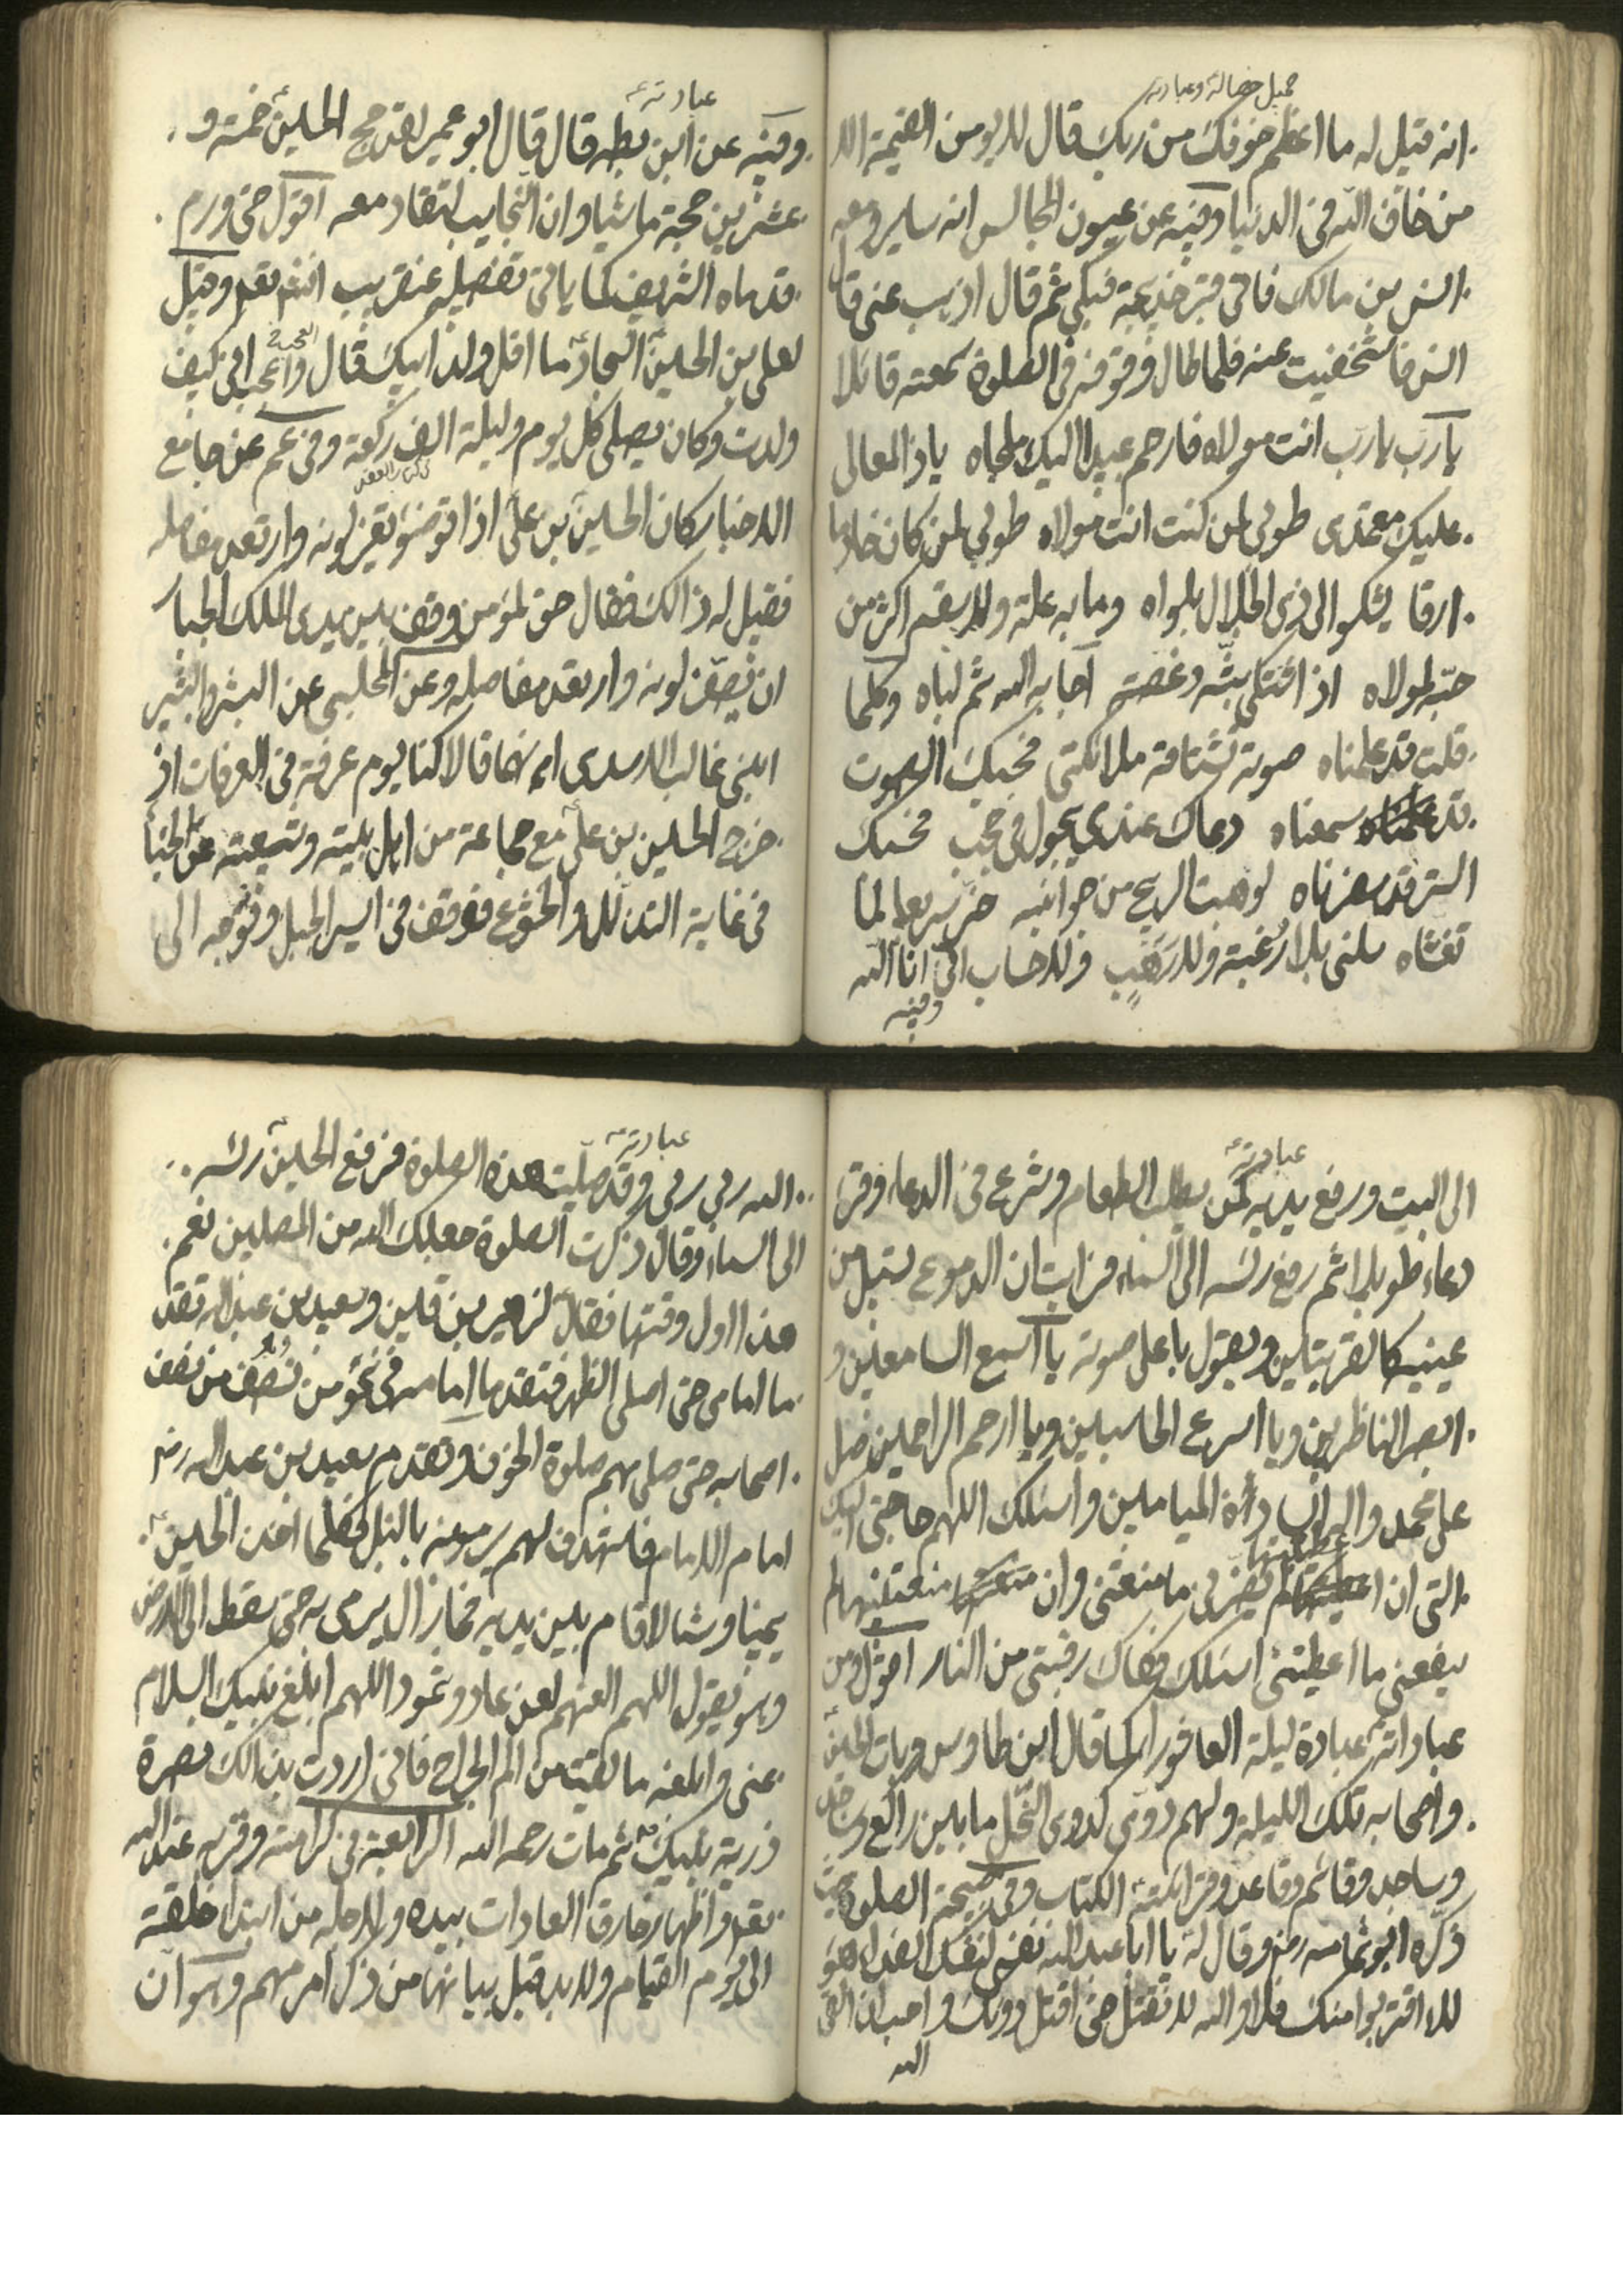 جميل خصاله وعبادته
انه قيل له ما اعظم خوفك من ربك قال لا يومن القيمة الا
من خاف الله في الدنيا وفيه عن عيون المجالس انه ساير ومعه
انس بن مالك فاتى قبر خديجة فبكى ثم قال اذهب عنى قال
انس فاستخفيت عنه فلما طال وقوفه في الصلوة سمعته قائلا
يا رب يا رب انت مولاه فارحم عبيدا اليك ملجاه يا ذا المعالى
عليك معتمدى طوبى لمن كنت انت مولاه طوبى لمن كان خادما
ارقا يشكو الى ذى الجلال بلواه وما به علة ولا سقم اكثر من
حبه لمولاه اذ اشتكى بثه وغصته اجابه الله ثم لباه وكلما
قلت قد علمناه صوتك تشتاقه ملائكتى فحسبك الصوت
قد سمعناه دعاك عندى يجول في حجب فحسبك
الستر قد سفرناه لو هبت الريح من جوانبه خر صريعا لما
تغشاه سلنى بلا رغبة ولا رهب ولا حساب انى انا الله
وفيه
عبادته
وفيه عن ابن بطه قال قال ابو عمير لقد حج الحسين خمسة و
عشرين حجة ماشيا وان النجايب لتقاد معه اقول حتى ورم
قدماه الشريف كما ياتى تفصيله عنقريب انشم تعم وقيل
لعلى بن الحسين السجاد ما اقل ولد ابيك قال واعجب انى كيف
ولدت وكان يصلى كل يوم وليلة الف ركعة وفي عم عن جامع
الاخبار كان الحسين بن على اذا توضؤ تغير لونه وارتعد مفاصله
فقيل له ذالك فقال حق لمؤمن وقف بين يدى الملك الجبار
ان يصفر لونه وارتعد مفاصله وعن المجلسى عن البشر والبشير
ابنى غالب الاسدى انهما قالا كنا يوم عرفة في العرفات اذ
خرج الحسين بن على مع جماعة من اهل بيته وشيعته عن الخبا
في غاية التذلل والخشوع فوقف في ايسر الجبل وتوجه الى
عبادته
الى البيت ورفع يديه كمن يطلب الطعام وشرع في الدعاء وقرء
دعاء طويلا ثم رفع رئسه الى السماء فرايت ان الدموع تسيل من
عينيه كالقربتين ويقول باعلى صوته يا اسمع السامعين و
ابصر الناظرين ويا اسرع الحاسبين ويا ارحم الراحمين صل
على محمد وال محمد السادة الميامين واسئلك اللهم حاجتى اليك
التى ان اعطيتنيها لم يضرنى ما منعتنى وان منعتنيها لم
ينفعنى ما اعطيتنى اسئلك فكاك رقبتى من النار اقول ومن
عباداته عبادة ليلة العاشور كما قال ابن طاوس وبات الحسين
واصحابه تلك الليلة ولهم دوى كدوى النحل ما بين راكع وساجد
وساجد وقائم وقاعد وقرائته الكتاب وفي صبيحة الصلوة حيث
ذكره ابو ثمامه رض وقال له يا ابا عبدالله نفسى لنفسك الفداء هؤ
لاء اقتربوا منك فلا والله لا تقتل حتى اقتل دونك واحب ان القى
الله
عبادته
الله ربى وقد صليت هذه الصلوة فرفع الحسين رئسه
الى السماء وقال ذكرت الصلوة جعلك الله من المصلين نعم
هذا اول وقتها فقال لزهير بن قين وسعيد بن عبدالله تقد
ما امامى حتى اصلى الظهر فتقدما امامه في نحو من نصف من نصف
اصحابه حتى صلى بهم صلوة الخوف وتقدم سعيد بن عبدالله رض
امام الامام فاستهدف لهم يرمونه بالنبل فكلما اخذ الحسين
يمينا وشمالا قام بين يديه فما زال يرمى به حتى سقط الى الارض
وهو يقول اللهم العنهم لعن عاد وثمود اللهم ابلغ نبيك السلام
عنى وابلغه ما لقيت من الم الجراح فانى اردت بذالك نصرة
ذرية نبيك ثم مات رحمه الله الرابعة في كرامته وقربه عند الله
تعم واظهار خارق العادات بيده ولاجله من ابتداء خلقته
الى يوم القيام ولا بد قبل بيانها من ذكر امر مهم وهو ان